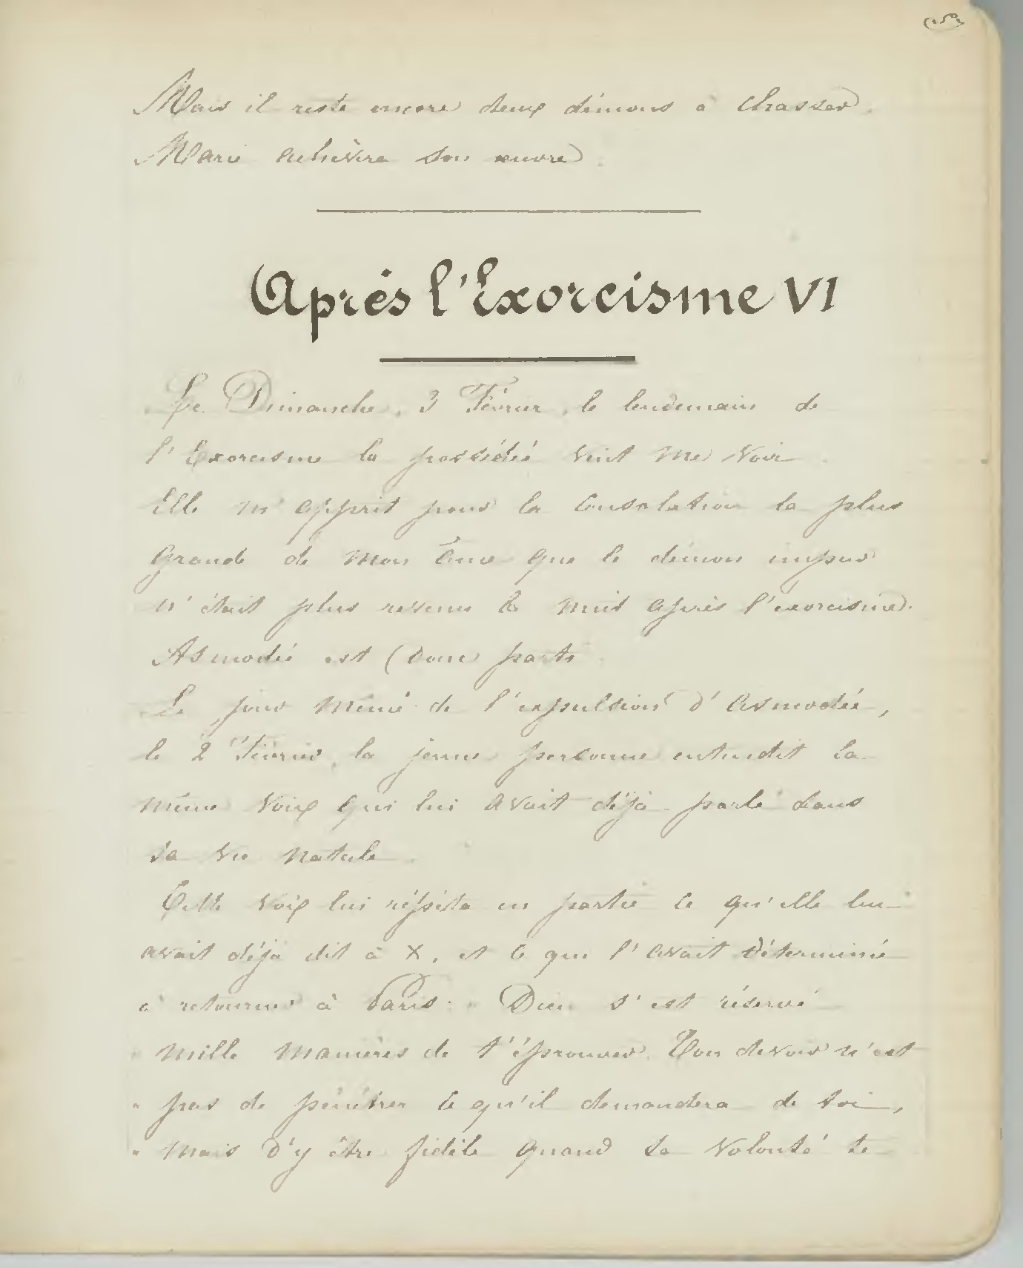 Mais il reste encore deux démons à chasser.
Marie achèvera son œuvre.
Après l'Exorcisme VI
Le Dimanche, 3 Février, le lendemain de
l'Exorcisme la possédée vint me voir.
Elle m'apprit pour la consolation la plus
grande de mon âme que le démon impur
n'était plus revenu la nuit après l'exorcisme.
Asmodée est donc parti.
Le jour même de l'expulsion d'Asmodée,
le 2 Février, la jeune personne entendit la
même voix qui lui avait déjà parlé dans
sa vie natale.
Cette voix lui répéta en partie ce qu'elle lui
avait déjà dit à X, et ce qui l'avait déterminé
à retourner à Paris: " Dieu s'est réservé
" mille manières de t'éprouver. Ton devoir n'est
" pas de pénétrer ce qu'il demandera de toi,
" mais d'y être fidèle quand sa volonté te